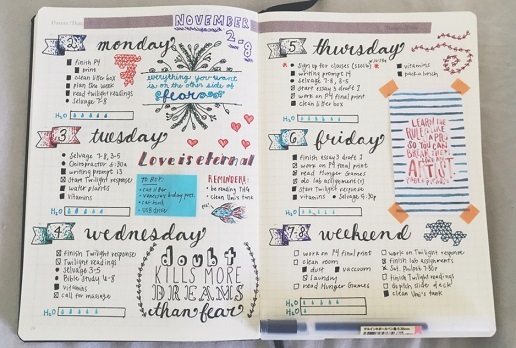 NOVEMBER
2-8
2
monday
finish P4
print
clean litter box
plan the week
read twilight readings
selvage 7-8
H2O
everything you want
is on the other side of
fear
3
tuesday
selvage 7-8, 3-5
Chiropractor 6:30a
writing prompt 13
start Twilight response
water plants
vitamins
H2O
Love is eternal
TO BUY:
REMINDERS:
be reading
clean Uni's tank
4
wednesday
finish Twilight response
Twilight readings
selvage 3-5
Bible Study 6-8
vitamins
call for massage
H2O
doubt
KILLS MORE
DREAMS
than fear
5
thursday
sign up for classes
writing prompt 14
selvage 7-8, 3-5
start essay 3 draft 1
work on P4 final print
clean litter box
vitamins
pack a lunch
H2O
LEARN THE
RULES LIKE
A PRO
SO YOU CAN
BREAK THEM
LIKE AN
ARTIST.
6
friday
finish essay 3 draft 1
work on P4 final print
read Hunger Games
do lab assignments
start Twilight response
vitamins
selvage 4:30p
H2O
7-8
weekend
work on P4 final print
clean room
dust
vacuum
laundry
read Hunger Games
work on Twilight response
finish lab assignments
finish Twilight readings
clean Uni's tank
H2O
H2O